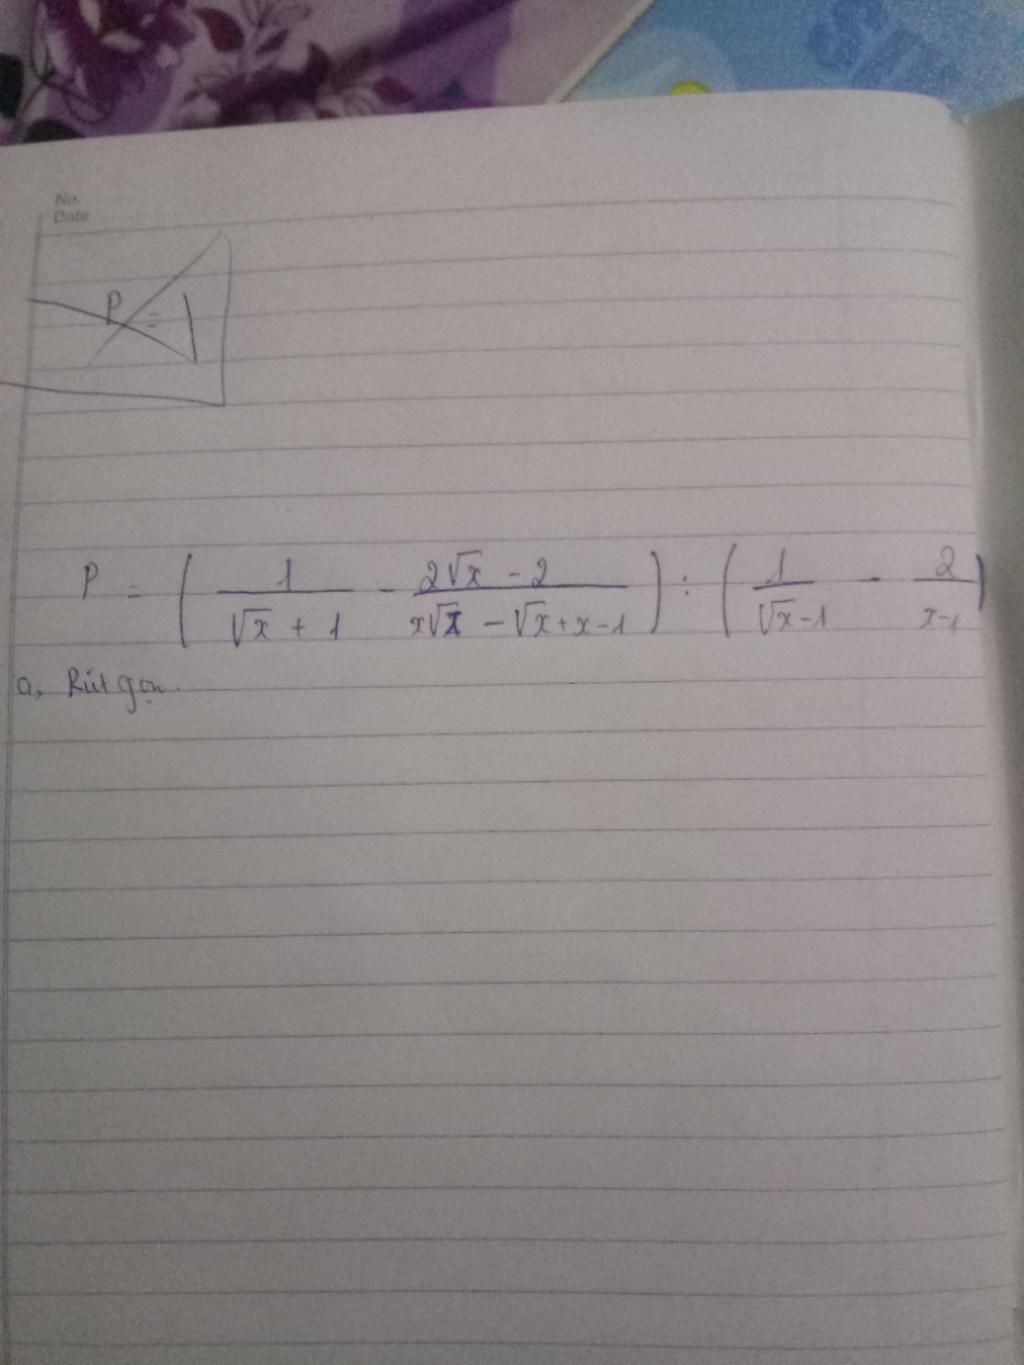 No.
Date
P =
P = ( 1/(√x + 1) - (2√x - 2)/(x√x - √x + x - 1) ) : ( 1/(√x - 1) - 2/(x - 1) )
a, Rút gọn.